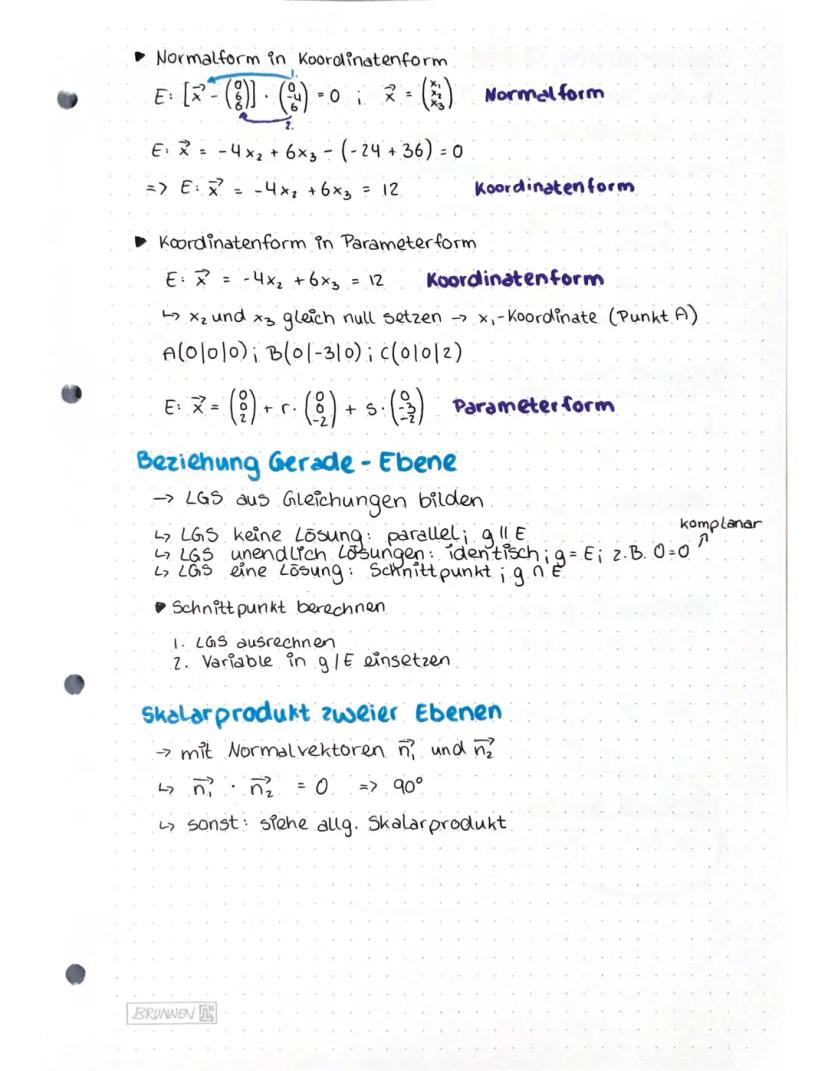 ▸ Normalform in Koordinatenform
E: [x⃗ - (0 6 6)] · (0 -4 6) = 0 ; x⃗ = (x₁ x₂ x₃) Normalform
1.
2.
E: x⃗ = -4x₂ + 6x₃ - (-24 + 36) = 0
=> E: x⃗ = -4x₂ + 6x₃ = 12 Koordinatenform
▸ Koordinatenform in Parameterform
E: x⃗ = -4x₂ + 6x₃ = 12 Koordinatenform
↳ x₂ und x₃ gleich null setzen → x₁-Koordinate (Punkt A)
A(0|0|0) ; B(0|-3|0) ; C(0|0|2)
E: x⃗ = (0 0 2) + r · (0 0 -2) + s · (0 -3 -2) Parameterform
Beziehung Gerade - Ebene
→ LGS aus Gleichungen bilden
komplanar
↳ LGS keine Lösung: parallel ; g || E
↳ LGS unendlich Lösungen: identisch ; g = E ; z.B. 0=0
↳ LGS eine Lösung: Schnittpunkt ; g ∩ E
▸ Schnittpunkt berechnen
1. LGS ausrechnen
2. Variable in g/E einsetzen
Skalarprodukt zweier Ebenen
→ mit Normalvektoren n₁⃗ und n₂⃗
↳ n₁⃗ · n₂⃗ = 0 => 90°
↳ sonst: siehe allg. Skalarprodukt
BRUNNEN